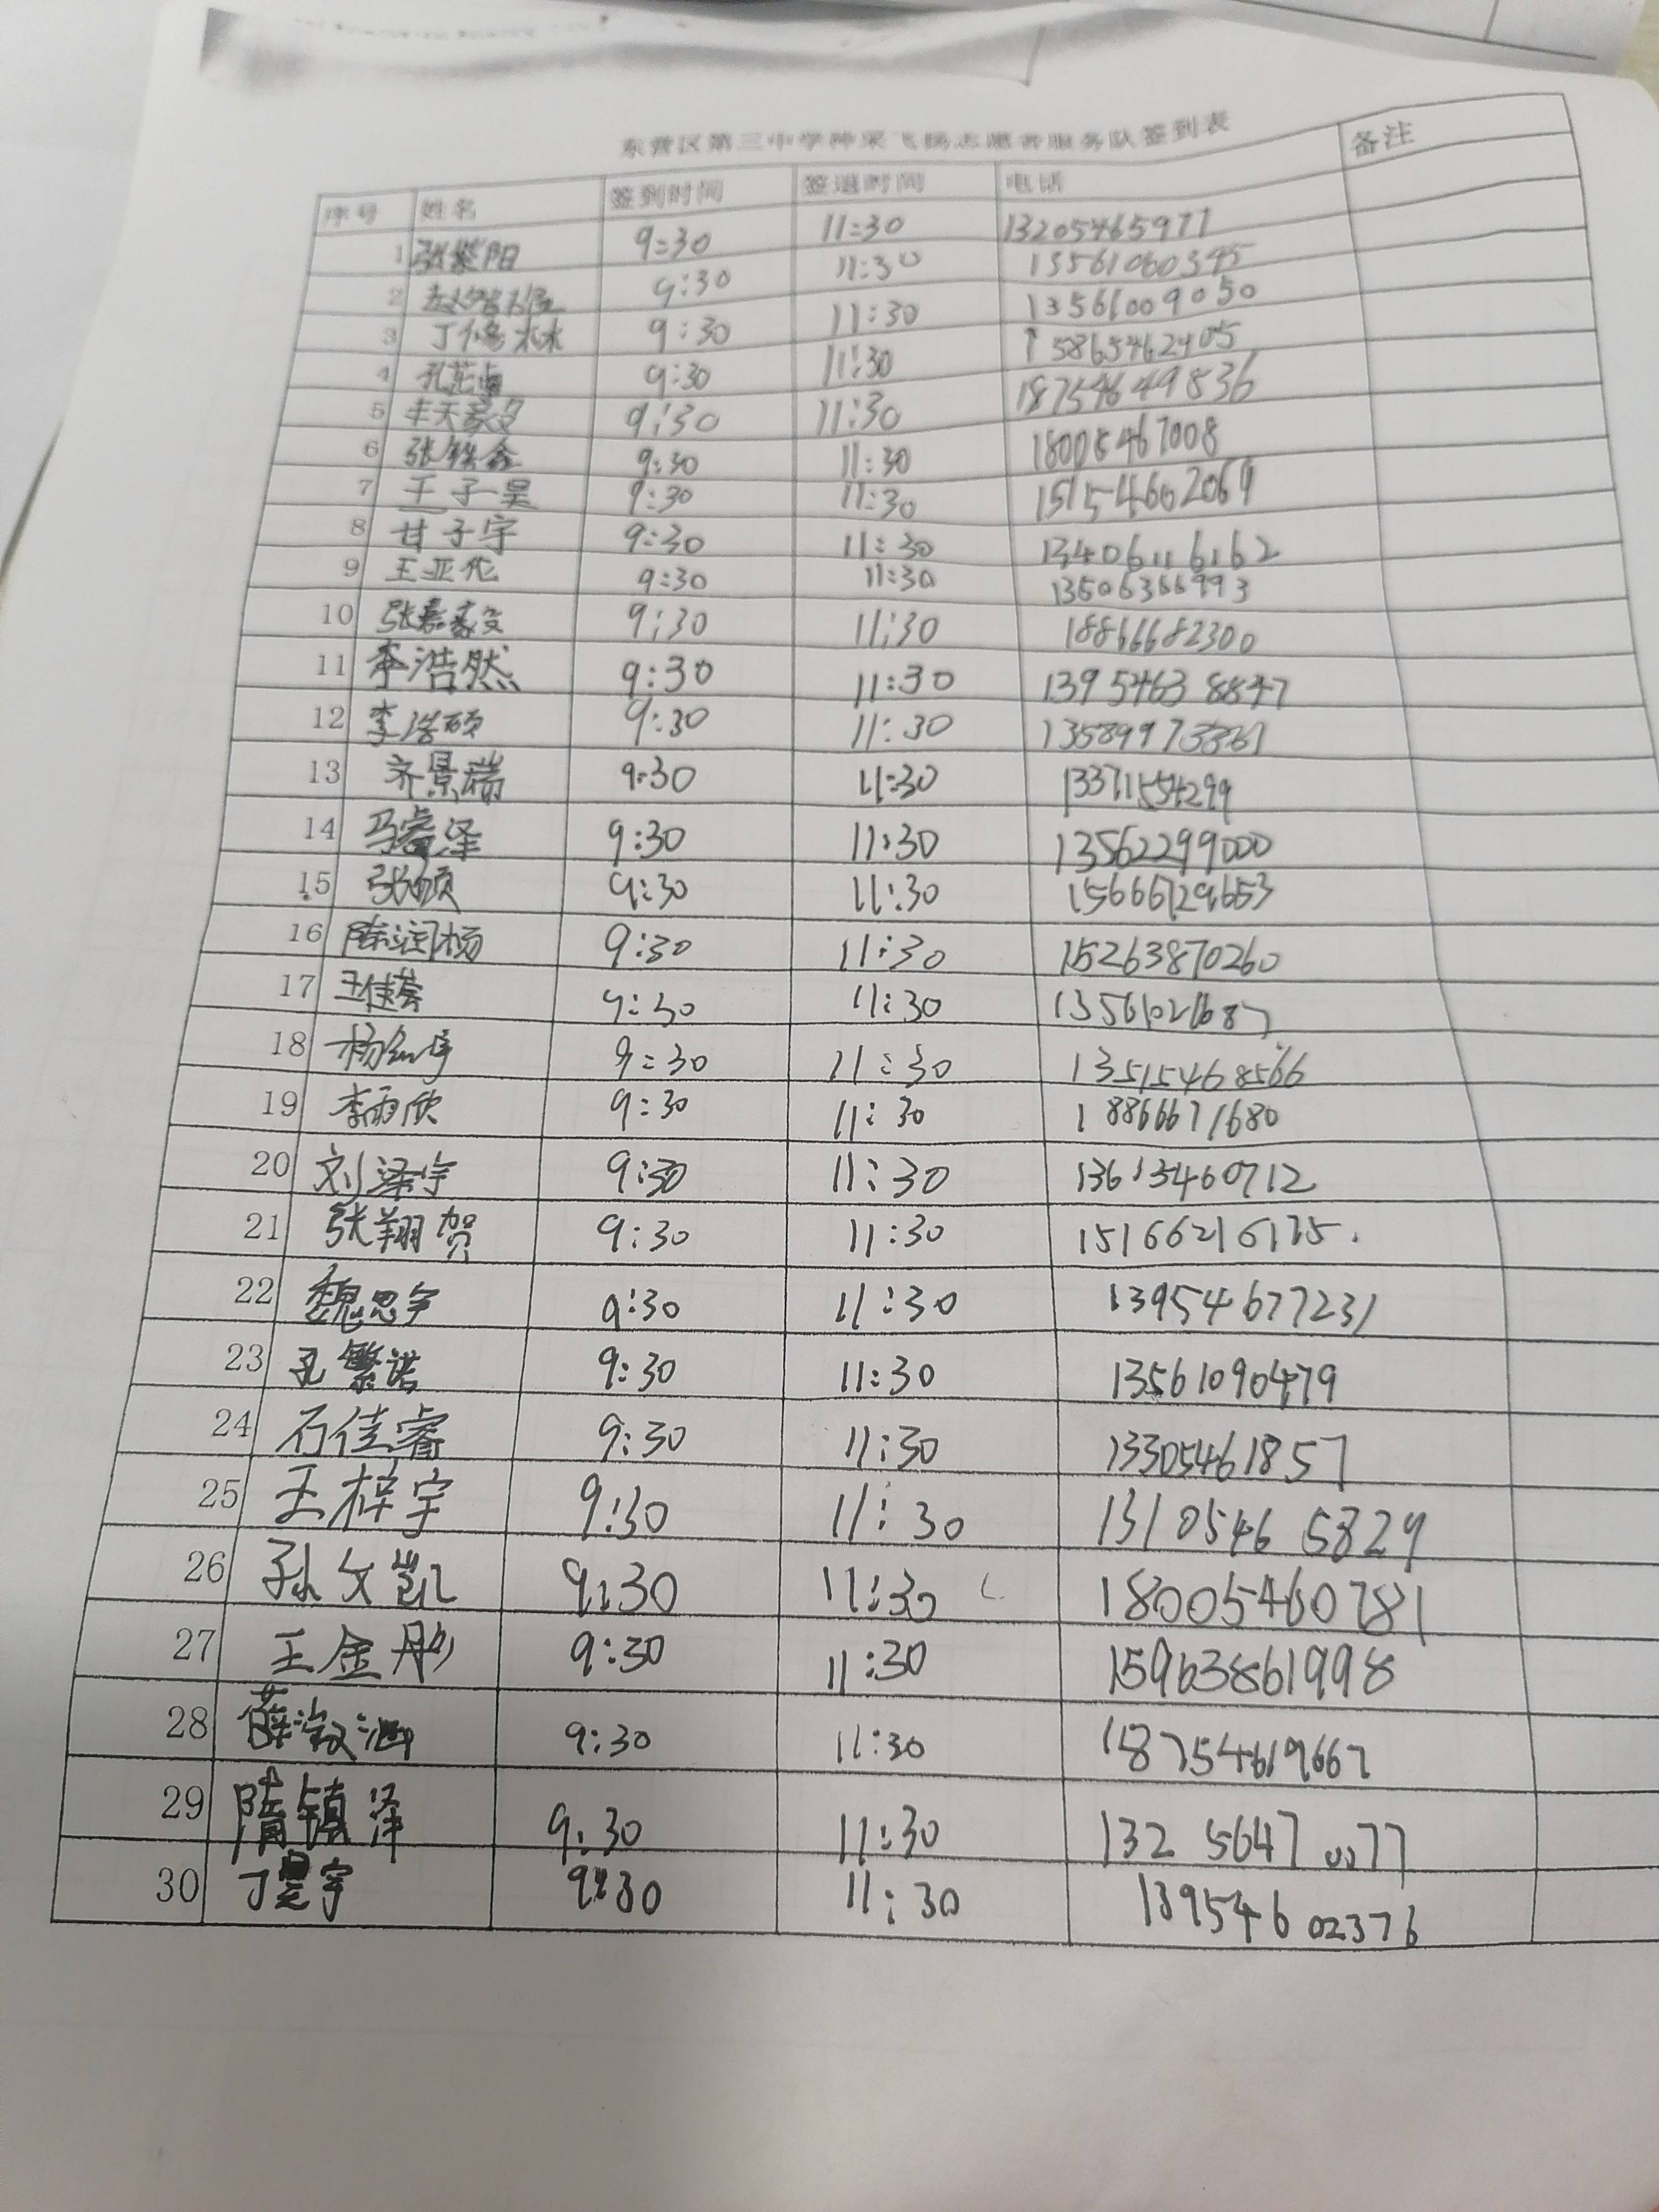 东营区第三中学神采飞扬志愿者服务队签到表
序号 姓名 签到时间 签退时间 电话 备注
1 张紫阳 9:30 11:30 13205465977
2 9:30 11:30 13561060345
3 丁修森 9:30 11:30 13561009050
4 孔芷 9:30 11:30 15865462405
5 9:30 11:30 18754649836
6 张铁鑫 9:30 11:30 18005467008
7 王子昊 9:30 11:30 15154602069
8 甘子宇 9:30 11:30 13406116162
9 王亚伦 9:30 11:30 13506366993
10 张嘉豪 9:30 11:30 18866682300
11 李浩然 9:30 11:30 13954638847
12 李浩硕 9:30 11:30
13 齐景瑞 9:30 11:30 13371554299
14 马睿泽 9:30 11:30 13562299000
15 张硕 9:30 11:30 15666729653
16 陈润杨 9:30 11:30 15263870260
17 王佳荟 9:30 11:30 13561021687
18 杨 宇 9:30 11:30 13515468566
19 李雨欣 9:30 11:30 18866671680
20 刘泽宇 9:30 11:30 13613460712
21 张翔贺 9:30 11:30 15166216175.
22 魏思宇 9:30 11:30 13954677231
23 孔繁诺 9:30 11:30 13561090479
24 石佳睿 9:30 11:30 13305461857
25 王梓宇 9:30 11:30 1310546 5829
26 孙文凯 9:30 11:30 18005460781
27 王金彤 9:30 11:30 15963861998
28 薛淑涵 9:30 11:30 18754619667
29 隋镇泽 9:30 11:30 132 5647 0077
30 丁昱宇 9:30 11:30 13954602376